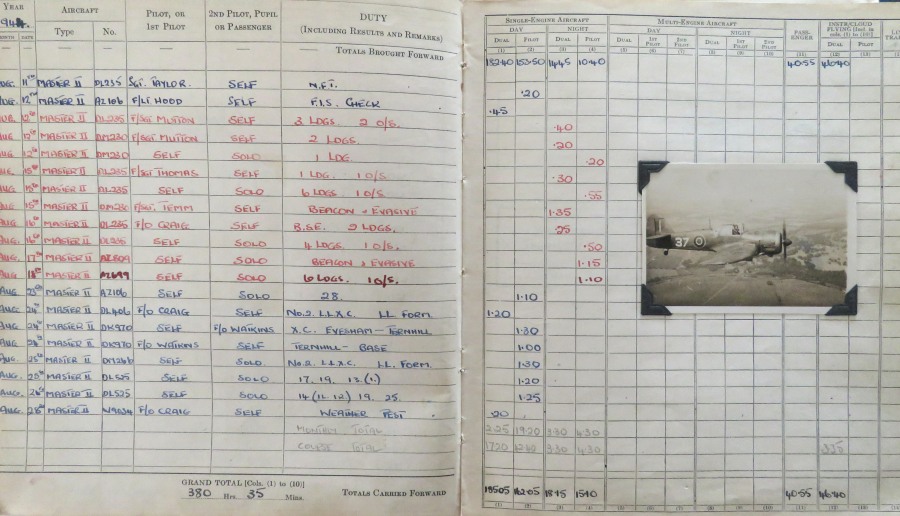 YEAR AIRCRAFT PILOT, OR 1ST PILOT 2ND PILOT, PUPIL OR PASSENGER DUTY (INCLUDING RESULTS AND REMARKS)
MONTH DATE Type No.
— — — — — — TOTALS BROUGHT FORWARD
11th MASTER II DL235 SGT. TAYLOR. SELF N.F.T.
AUG. 12th MASTER II AZ106 F/LT HOOD SELF F.I.S. CHECK
12th MASTER II DL235 F/SGT MUTTON SELF 3 LDGS. 2 O/S.
AUG 12 MASTER II DM230 F/SGT MUTTON SELF 2 LDGS.
AUG 12th MASTER II DM230 SELF SOLO 1 LDG.
15th MASTER II DL235 F/SGT THOMAS SELF 1 LDG. 1 O/S
AUG 15th MASTER II DL235 SELF SOLO 6 LDGS 1 O/S
AUG 15th MASTER II DM230 F/SGT. TEMM SELF BEACON & EVASIVE
AUG 16th MASTER II DL235 F/O CRAIG SELF B.S.E. 2 LDGS.
AUG. 16th MASTER II DL235 SELF SOLO 4 LDGS. 1 O/S.
AUG. 17th MASTER II SELF SOLO BEACON & EVASIVE
AUG 18th MASTER II SELF SOLO 6 LDGS. 1 O/S.
AUG 23rd MASTER II AZ106 SELF SOLO 28.
AUG. 24th MASTER II DL406 F/O CRAIG SELF No.2. L.L.X.C. LL FORM.
AUG. 24th MASTER II DK970 SELF F/O WATKINS X.C. EVESHAM - TERNHILL
AUG. MASTER II DK970 F/O WATKINS SELF TERNHILL - BASE
AUG. 25th MASTER II SELF SOLO. No.2. L.L.X.C. LL. FORM.
AUG. MASTER II DL525 SELF SOLO 17. 19. 13.(1.)
AUG. 26th MASTER II DL525 SELF SOLO 14 (11. 12) 19. 25.
AUG. 28th MASTER II W9034 F/O CRAIG SELF WEATHER TEST
MONTHLY TOTAL
COURSE TOTAL
GRAND TOTAL [Cols. (1) to (10)]
380 Hrs. 35 Mins. TOTALS CARRIED FORWARD
SINGLE-ENGINE AIRCRAFT MULTI-ENGINE AIRCRAFT PASS-ENGER INSTR/CLOUD FLYING [Incl. in cols. (1) to (10)]
DAY NIGHT DAY NIGHT
DUAL PILOT DUAL PILOT DUAL 1ST PILOT 2ND PILOT DUAL 1ST PILOT 2ND PILOT DUAL PILOT
(1) (2) (3) (4) (5) (6) (7) (8) (9) (10) (11) (12) (13)
14.45 10.40 40.55 46.40
.20
.45
.40
.20
.20
.30
.55
1.35
.25
.50
1.15
1.10
1.10
1.20
1.30
1.00
1.30
1.20
1.25
.20
2.25 19.20 3.30 4.30
17.20 3.30 4.30 3.35
185.05 162.05 18.15 15.10 40.55 46.40
(1) (2) (3) (4) (5) (6) (7) (8) (9) (10) (11) (12) (13)
37